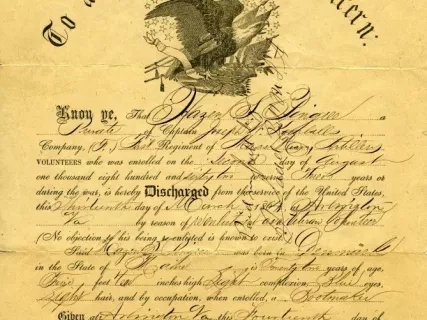 To a
cern:
Know ye, That Hazen S. Pingree a
Private of Captain Joseph W. Kimballs
Company, (F,) First Regiment of Heavy Artillery
VOLUNTEERS who was enrolled on the Second day of August
one thousand eight hundred and sixty two to serve three years or
during the war, is hereby Discharged from the service of the United States,
this Thirteenth day of March, 1864, at Arlington
Va by reason of reenlist as Veteran Volunteer
(No objection to his being re-enlisted is known to exist.)
Said Hazen S. Pingree was born in Denmark
in the State of Maine, is Twenty one years of age,
Five feet ten inches high, Light complexion, Blue eyes,
Light hair, and by occupation, when enrolled, a Bootmaker
Given at Arlington Va this Fourteenth day of